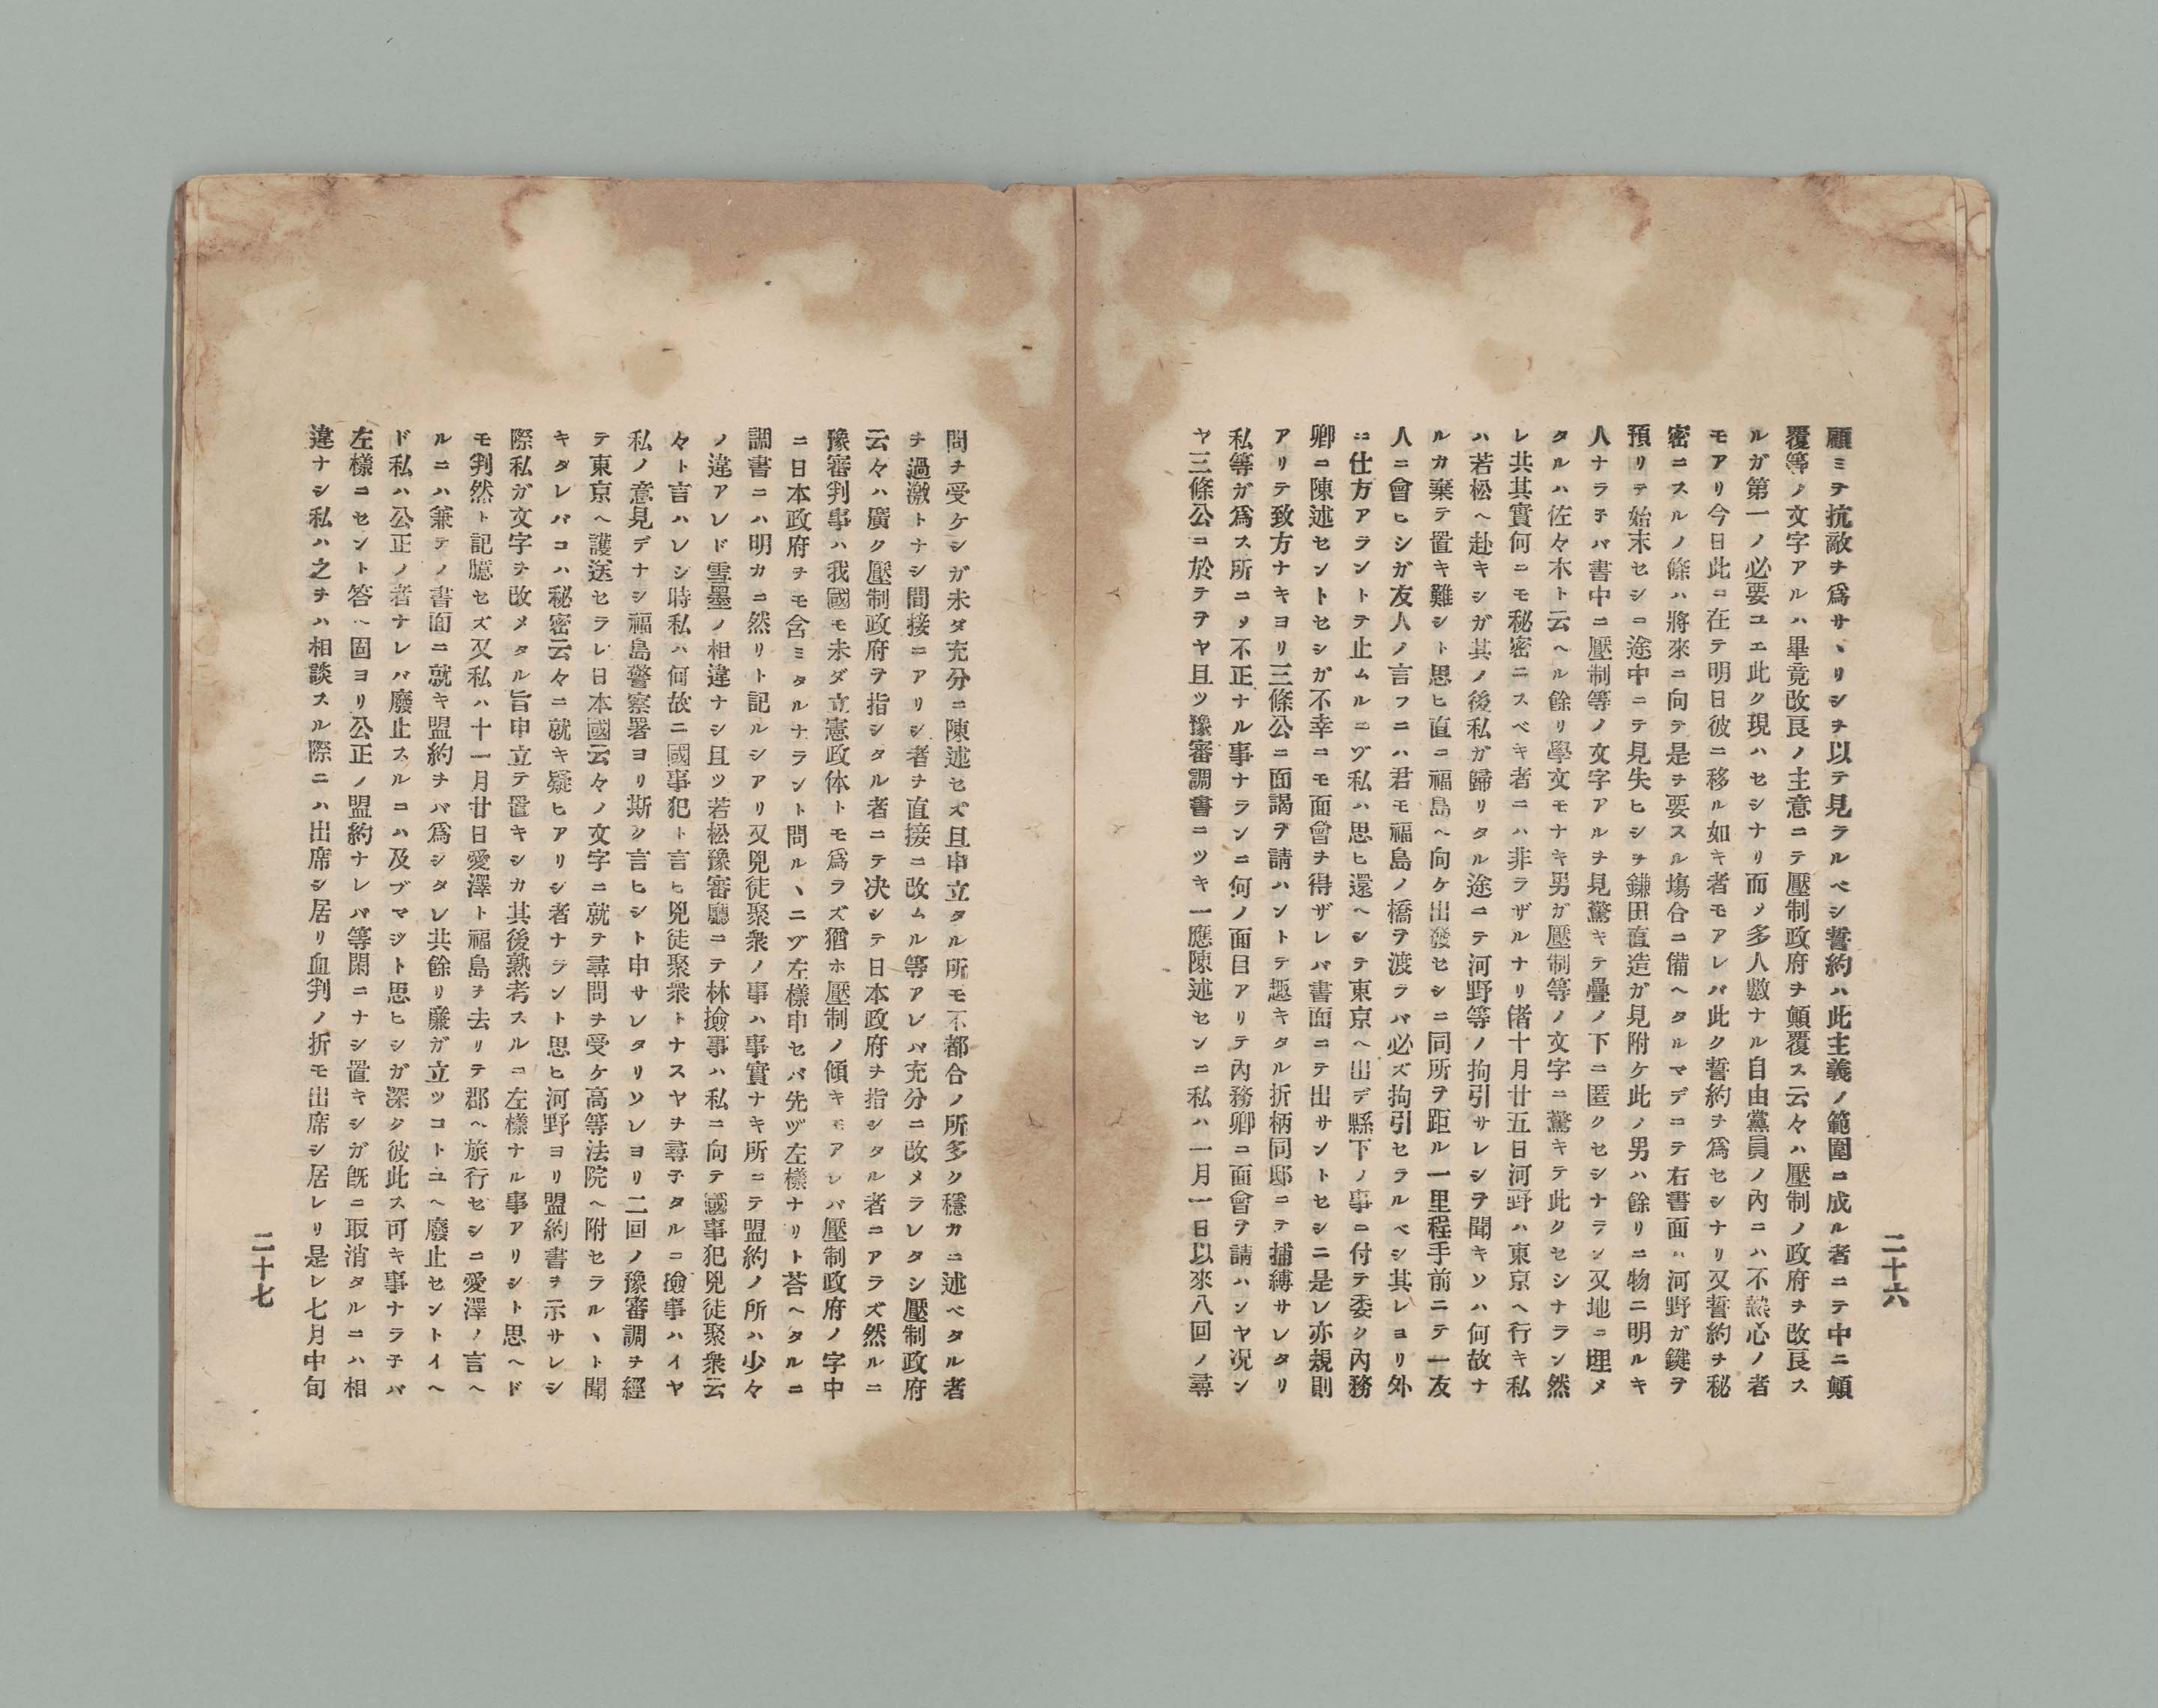 二十六
顧ミテ抗敵ヲ爲サヽリシヲ以テ見ラルベシ誓約ハ此主義ノ範圍ニ成ル者ニテ中ニ顛
覆等ノ文字アルハ畢竟改良ノ主意ニテ壓制政府ヲ顛覆ス云々ハ壓制ノ政府ヲ改良ス
ルガ第一ノ必要ユエ此ク現ハセシナリ而ノ多人數ナル自由黨員ノ內ニハ不熱心ノ者
モアリ今日此ニ在テ明日彼ニ移ル如キ者モアレバ此ク誓約ヲ爲セシナリ又誓約ヲ秘
密ニスルノ條ハ將來ニ向テ是ヲ要スル塲合ニ備ヘタルマデニテ右書面ハ河野ガ鍵ヲ
預リテ始末セシニ途中ニテ見失ヒシヲ鎌田直造ガ見附ケ此ノ男ハ餘リニ物ニ明ルキ
人ナラネバ書中ニ壓制等ノ文字アルヲ見驚キテ疊ノ下ニ匿クセシナラン又地ニ埋メ
タルハ佐々木ト云ヘル餘リ學文モナキ男ガ壓制等ノ文字ニ驚キテ此クセシナラン然
レ共其實何ニモ秘密ニスベキ者ニハ非ラザルナリ偖十月廿五日河野ハ東京ヘ行キ私
ハ若松ヘ赴キシガ其ノ後私ガ歸リタル途ニテ河野等ノ拘引サレシヲ聞キソハ何故ナ
ルカ棄テ置キ難シト思ヒ直ニ福島ヘ向ケ出發セシニ同所ヲ距ル一里程手前ニテ一友
人ニ會ヒシガ友人ノ言フニハ君モ福島ノ橋ヲ渡ラバ必ズ拘引セラルベシ其レヨリ外
ニ仕方アラントテ止ムルニゾ私ハ思ヒ還ヘシテ東京ヘ出デ縣下ノ事ニ付テ委ク內務
卿ニ陳述セントセシガ不幸ニモ面會ヲ得ザレバ書面ニテ出サントセシニ是レ亦規則
アリテ致方ナキヨリ三條公ニ面謁ヲ請ハントテ趣キタル折柄同邸ニテ捕縛サレタリ
私等ガ爲ス所ニノ不正ナル事ナランニ何ノ面目アリテ內務卿ニ面會ヲ請ハンヤ况ン
ヤ三條公ニ於テヲヤ且ツ豫審調書ニツキ一應陳述センニ私ハ一月一日以來八回ノ尋
問ヲ受ケシガ未タ充分ニ陳述セズ且申立タル所モ不都合ノ所多ク穩カニ述ベタル者
ヲ過激トナシ間接ニアリシ者ヲ直接ニ改ムル等アレバ充分ニ改メラレタシ壓制政府
云々ハ廣ク壓制政府ヲ指シタル者ニテ决シテ日本政府ヲ指シタル者ニアラズ然ルニ
豫審判事ハ我國モ未ダ立憲政体トモ爲ラズ猶ホ壓制ノ傾キモアレバ壓制政府ノ字中
ニ日本政府ヲモ含ミタルナラント問ルヽニゾ左樣申セバ先ヅ左樣ナリト荅ヘタルニ
調書ニハ明カニ然リト記ルシアリ又兇徒聚衆ノ事ハ事實ナキ所ニテ盟約ノ所ハ少々
ノ違アレド雪墨ノ相違ナシ且ツ若松豫審廳ニテ林撿事ハ私ニ向テ國事犯兇徒聚衆云
々ト言ハレシ時私ハ何故ニ國事犯ト言ヒ兇徒聚衆トナスヤヲ尋子タルニ撿事ハイヤ
私ノ意見デナシ福島警察署ヨリ斯ク言ヒシト申サレタリソレヨリ二回ノ豫審調ヲ經
テ東京ヘ護送セラレ日本國云々ノ文字ニ就テ尋問ヲ受ケ高等法院ヘ附セラルヽト聞
キタレバコハ秘密云々ニ就キ疑ヒアリシ者ナラント思ヒ河野ヨリ盟約書ヲ示サレシ
際私ガ文字ヲ改メタル旨申立テ置キシカ其後熟考スルニ左樣ナル事アリシト思ヘド
モ判然ト記臆セズ又私ハ十一月廿日愛澤ト福島ヲ去リテ郡ヘ旅行セシニ愛澤ノ言ヘ
ルニハ兼テノ書面ニ就キ盟約ヲバ爲シタレ共餘リ廉ガ立ツコトユヘ廢止セントイヘ
ド私ハ公正ノ者ナレバ廢止スルコハ及ブマジト思ヒシガ深ク彼此ス可キ事ナラ子バ
左樣ニセント答ヘ固ヨリ公正ノ盟約ナレバ等閑ニナシ置キシガ旣ニ取消タルニハ相
違ナシ私ハ之ヲハ相談スル際ニハ出席シ居リ血判ノ折モ出席シ居レリ是レ七月中旬
二十七